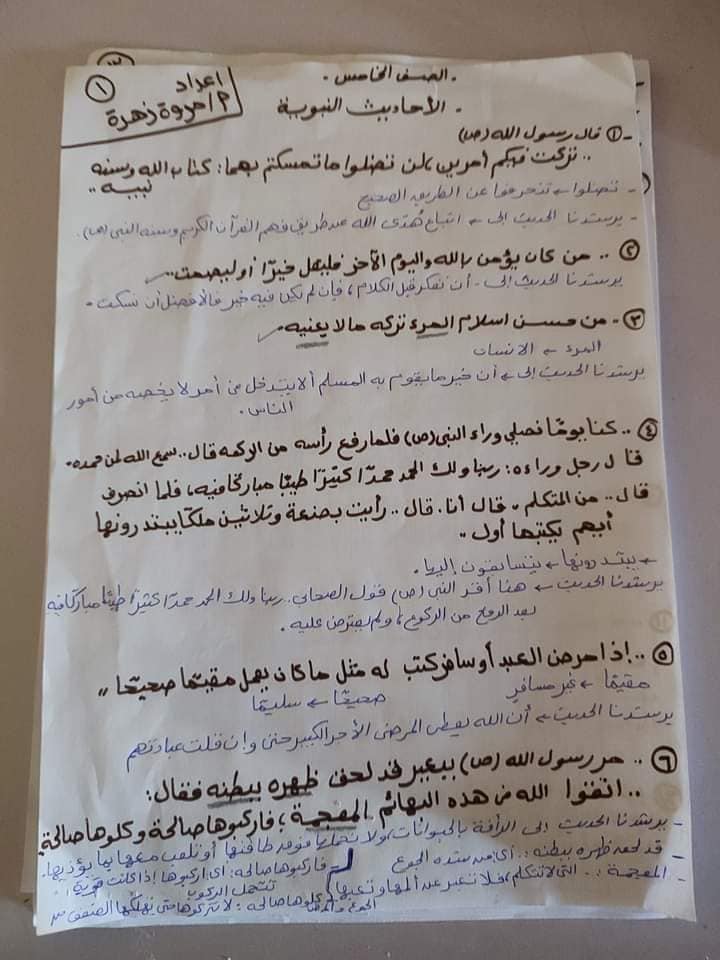 ١
اعداد
م/ مروة زهرة
- الصف الخامس -
- الأحاديث النبوية
- ① قال رسول الله (ص)
.. تركت فيكم أمرين، لن تضلوا ما تمسكتم بهما: كتاب الله وسنة نبيه ،،
- تضلوا ← تنحرفوا عن الطريق الصحيح
- يرشدنا الحديث إلى ← اتباع هُدى الله عن طريق فهم القرآن الكريم وسنة النبي (ص).
② .. من كان يؤمن بالله واليوم الآخر فليقل خيرًا أو ليصمت ..
يرشدنا الحديث إلى - أن نفكر قبل الكلام، فإن لم يكن فيه خير فالأفضل أن نسكت .
③ - من حسن اسلام المرء تركه ما لا يعنيه .
المرء ← الانسان
يرشدنا الحديث إلى ← أن خير ما يقوم به المسلم ألا يتدخل في أمر لا يخصه من أمور
الناس .
④ .. كنا يومًا نصلي وراء النبي (ص) فلما رفع رأسه من الركعة قال .. سمع الله لمن حمده .
قال رجل وراءه : ربنا ولك الحمد حمدًا كثيرًا طيبًا مباركًا فيه، فلما انصرف
قال .. من المتكلم ، قال أنا . قال .. رأيت بضعة وثلاثين ملكًا يبتدرونها
أيهم يكتبها أول ،،
← يبتدرونها ← يتسابقون إليها .
يرشدنا الحديث ← هنا أقر النبي (ص) قول الصحابي .. ربنا ولك الحمد حمدًا كثيرًا طيبًا مباركًا فيه
بعد الرفع من الركوع، ولم يعترض عليه .
⑤ .. إذا مرض العبد أو سافر كتب له مثل ما كان يعمل مقيمًا صحيحًا ،،
مقيمًا ← غير مسافر صحيحًا ← سليمًا
يرشدنا الحديث ← أن الله يعطي المرضى الأجر الكبير حتى وإن قلت عبادتهم
⑥ .. مر رسول الله (ص) ببعير قد لحق ظهره ببطنه فقال:
.. اتقوا الله في هذه البهائم المعجمة ؛ فاركبوها صالحة وكلوها صالحة
- يرشدنا الحديث إلى الرأفة بالحيوانات، ولا نحملها فوق طاقتها أو نلعب معها بما يؤذيها.
- قد لحق ظهره ببطنه : .. أي من شدة الجوع فاركبوها صالحة: أي اركبوها إذا كانت قوية
- المعجمة : .. التي لا تتكلم، فلا تعبر عن ألمها وتعبها تتحمل الركوب
كلوها صالحة : لا تتركوها حتى يهلكها الضعف من
الجوع